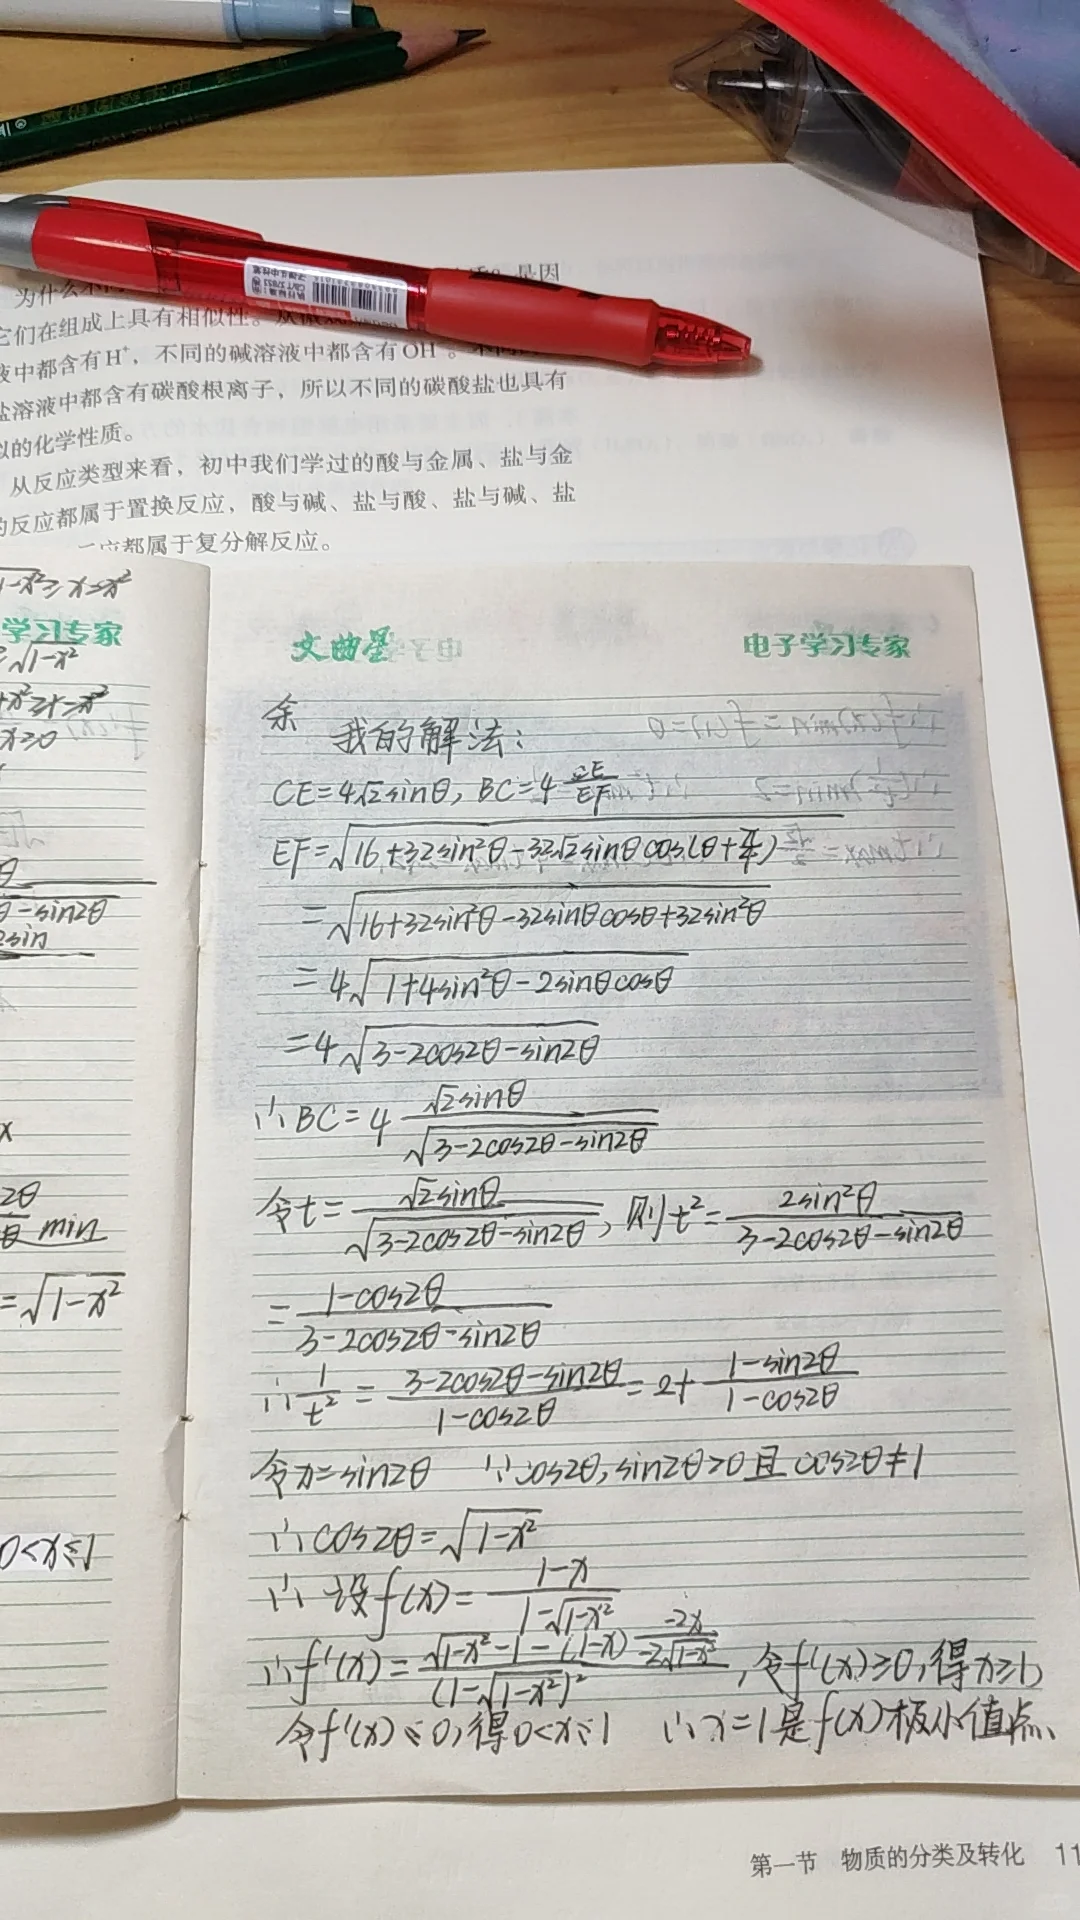 为什么不同
是因
它们在组成上具有相似性。从微
液中都含有H⁺，不同的碱溶液中都含有OH⁻。不同的
盐溶液中都含有碳酸根离子，所以不同的碳酸盐也具有
似的化学性质。
从反应类型来看，初中我们学过的酸与金属、盐与金
的反应都属于置换反应，酸与碱、盐与酸、盐与碱、盐
应都属于复分解反应。
学习专家
=√(1-x²)
x≥0
θ-sin2θ
2sin
x
2θ
θ min
=√(1-x²)
0<x≤1
文曲星
电子学习专家
余 我的解法：
CE=4√2sinθ, BC=4 CE/EF
EF=√(16+32sin²θ-32√2sinθcos(θ+π/4))
=√(16+32sin²θ-32sinθcosθ+32sin²θ)
=4√(1+4sin²θ-2sinθcosθ)
=4√(3-2cos2θ-sin2θ)
∴BC=4 √2sinθ/√(3-2cos2θ-sin2θ)
令t=√2sinθ/√(3-2cos2θ-sin2θ), 则t²=2sin²θ/(3-2cos2θ-sin2θ)
=(1-cos2θ)/(3-2cos2θ-sin2θ)
∴1/t²=(3-2cos2θ-sin2θ)/(1-cos2θ)=2+(1-sin2θ)/(1-cos2θ)
令x=sin2θ ∵cos2θ,sin2θ>0且cos2θ≠1
∴cos2θ=√(1-x²)
∴设f(x)=(1-x)/(1-√(1-x²))
∴f'(x)=(√(1-x²)-1-(1-x)·(-2x)/(-2√(1-x²)))/(1-√(1-x²))², 令f'(x)≥0,得x≥1,
令f'(x)≤0,得0<x≤1 ∴x=1是f(x)极小值点、
第一节 物质的分类及转化 11